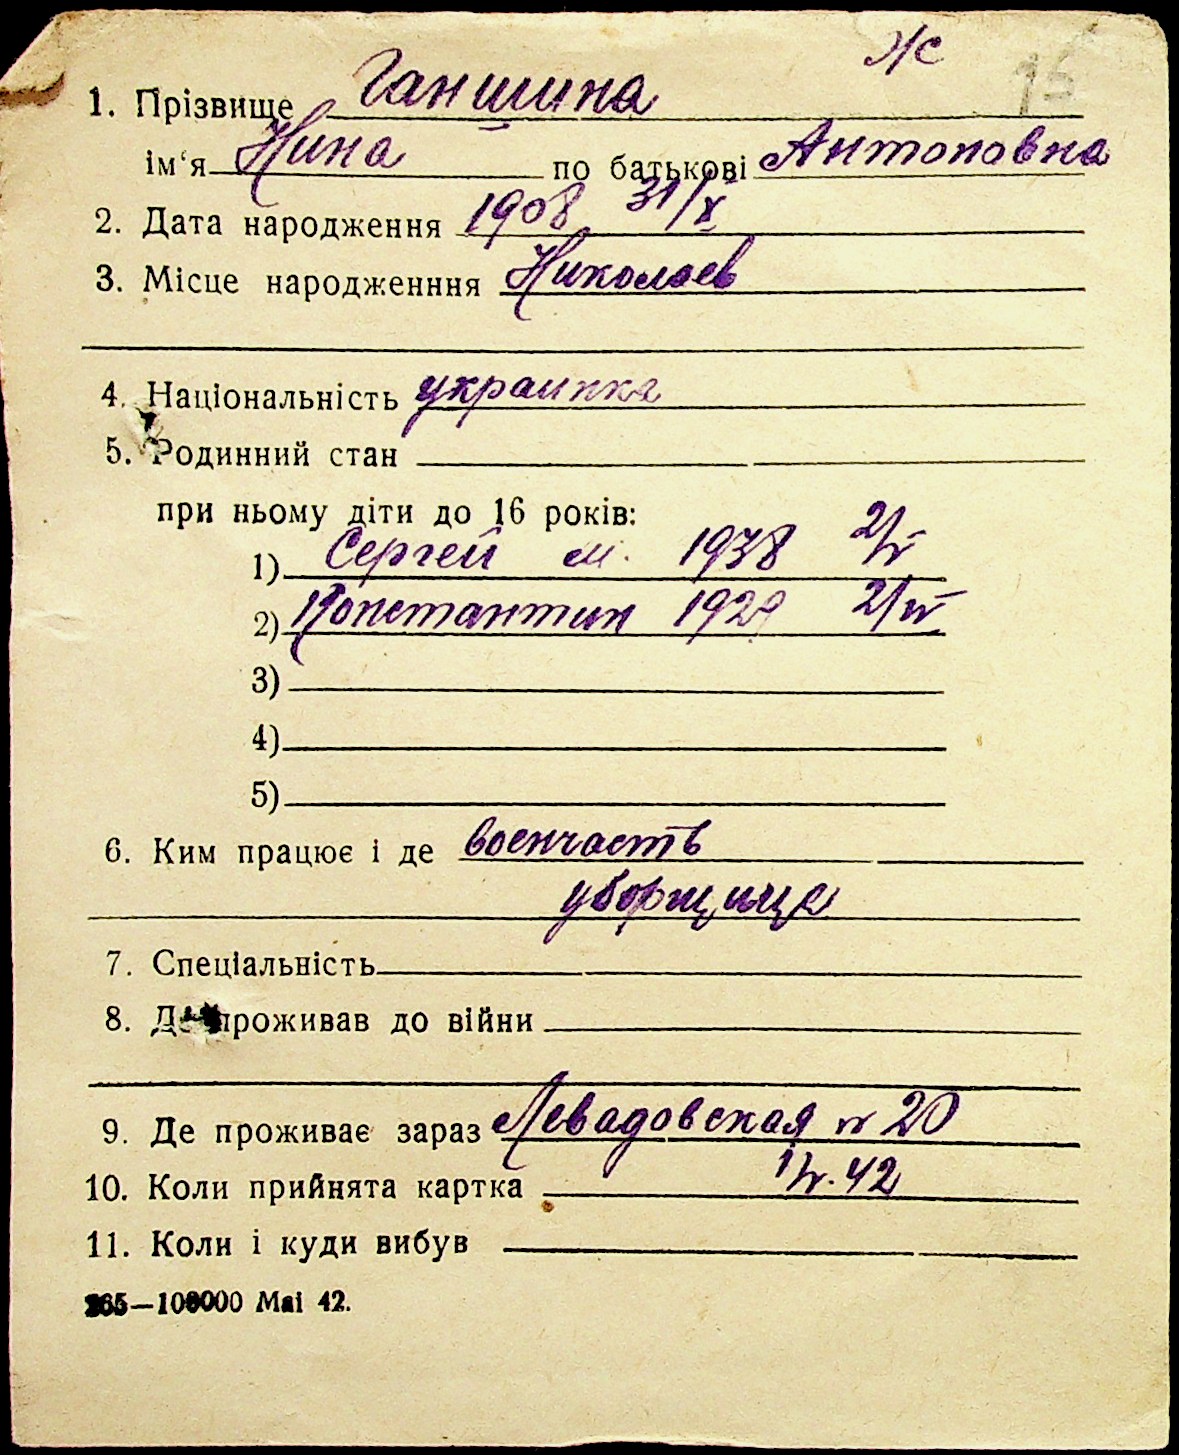 Ж 15
1. Прізвище Ганшина
ім'я Нина по батькові Антоновна
2. Дата народження 1908 31/X
3. Місце народженння Николаев
4. Національність украинка
5. Родинний стан
при ньому діти до 16 років:
1) Сергей м. 1938
2) Константин 1929
3)
4)
5)
6. Ким працює і де военчасть
уборщица
7. Спеціальність
8. Де проживав до війни
9. Де проживає зараз Левадовская 20
10. Коли прийнята картка 42
11. Коли і куди вибув
265—100000 Маі 42.